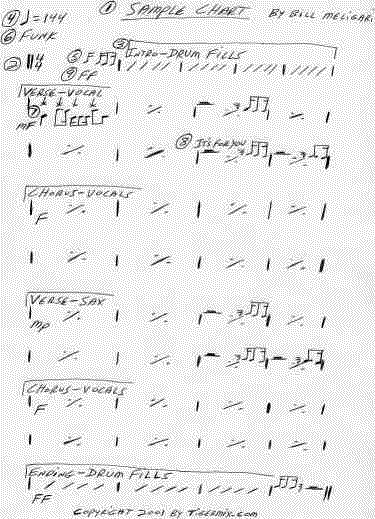 ① SAMPLE CHART BY BILL MELIGARI
④ ♩=144
⑥ FUNK
③ INTRO-DRUM FILLS
② 4/4 ⑤
⑨ FF
VERSE-VOCAL
⑦
mF
⑧ IT'S FOR YOU
CHORUS-VOCALS
F
VERSE-SAX
mp
CHORUS-VOCALS
F
ENDING-DRUM FILLS
FF
COPYRIGHT 2001 BY TIGERMIX.COM